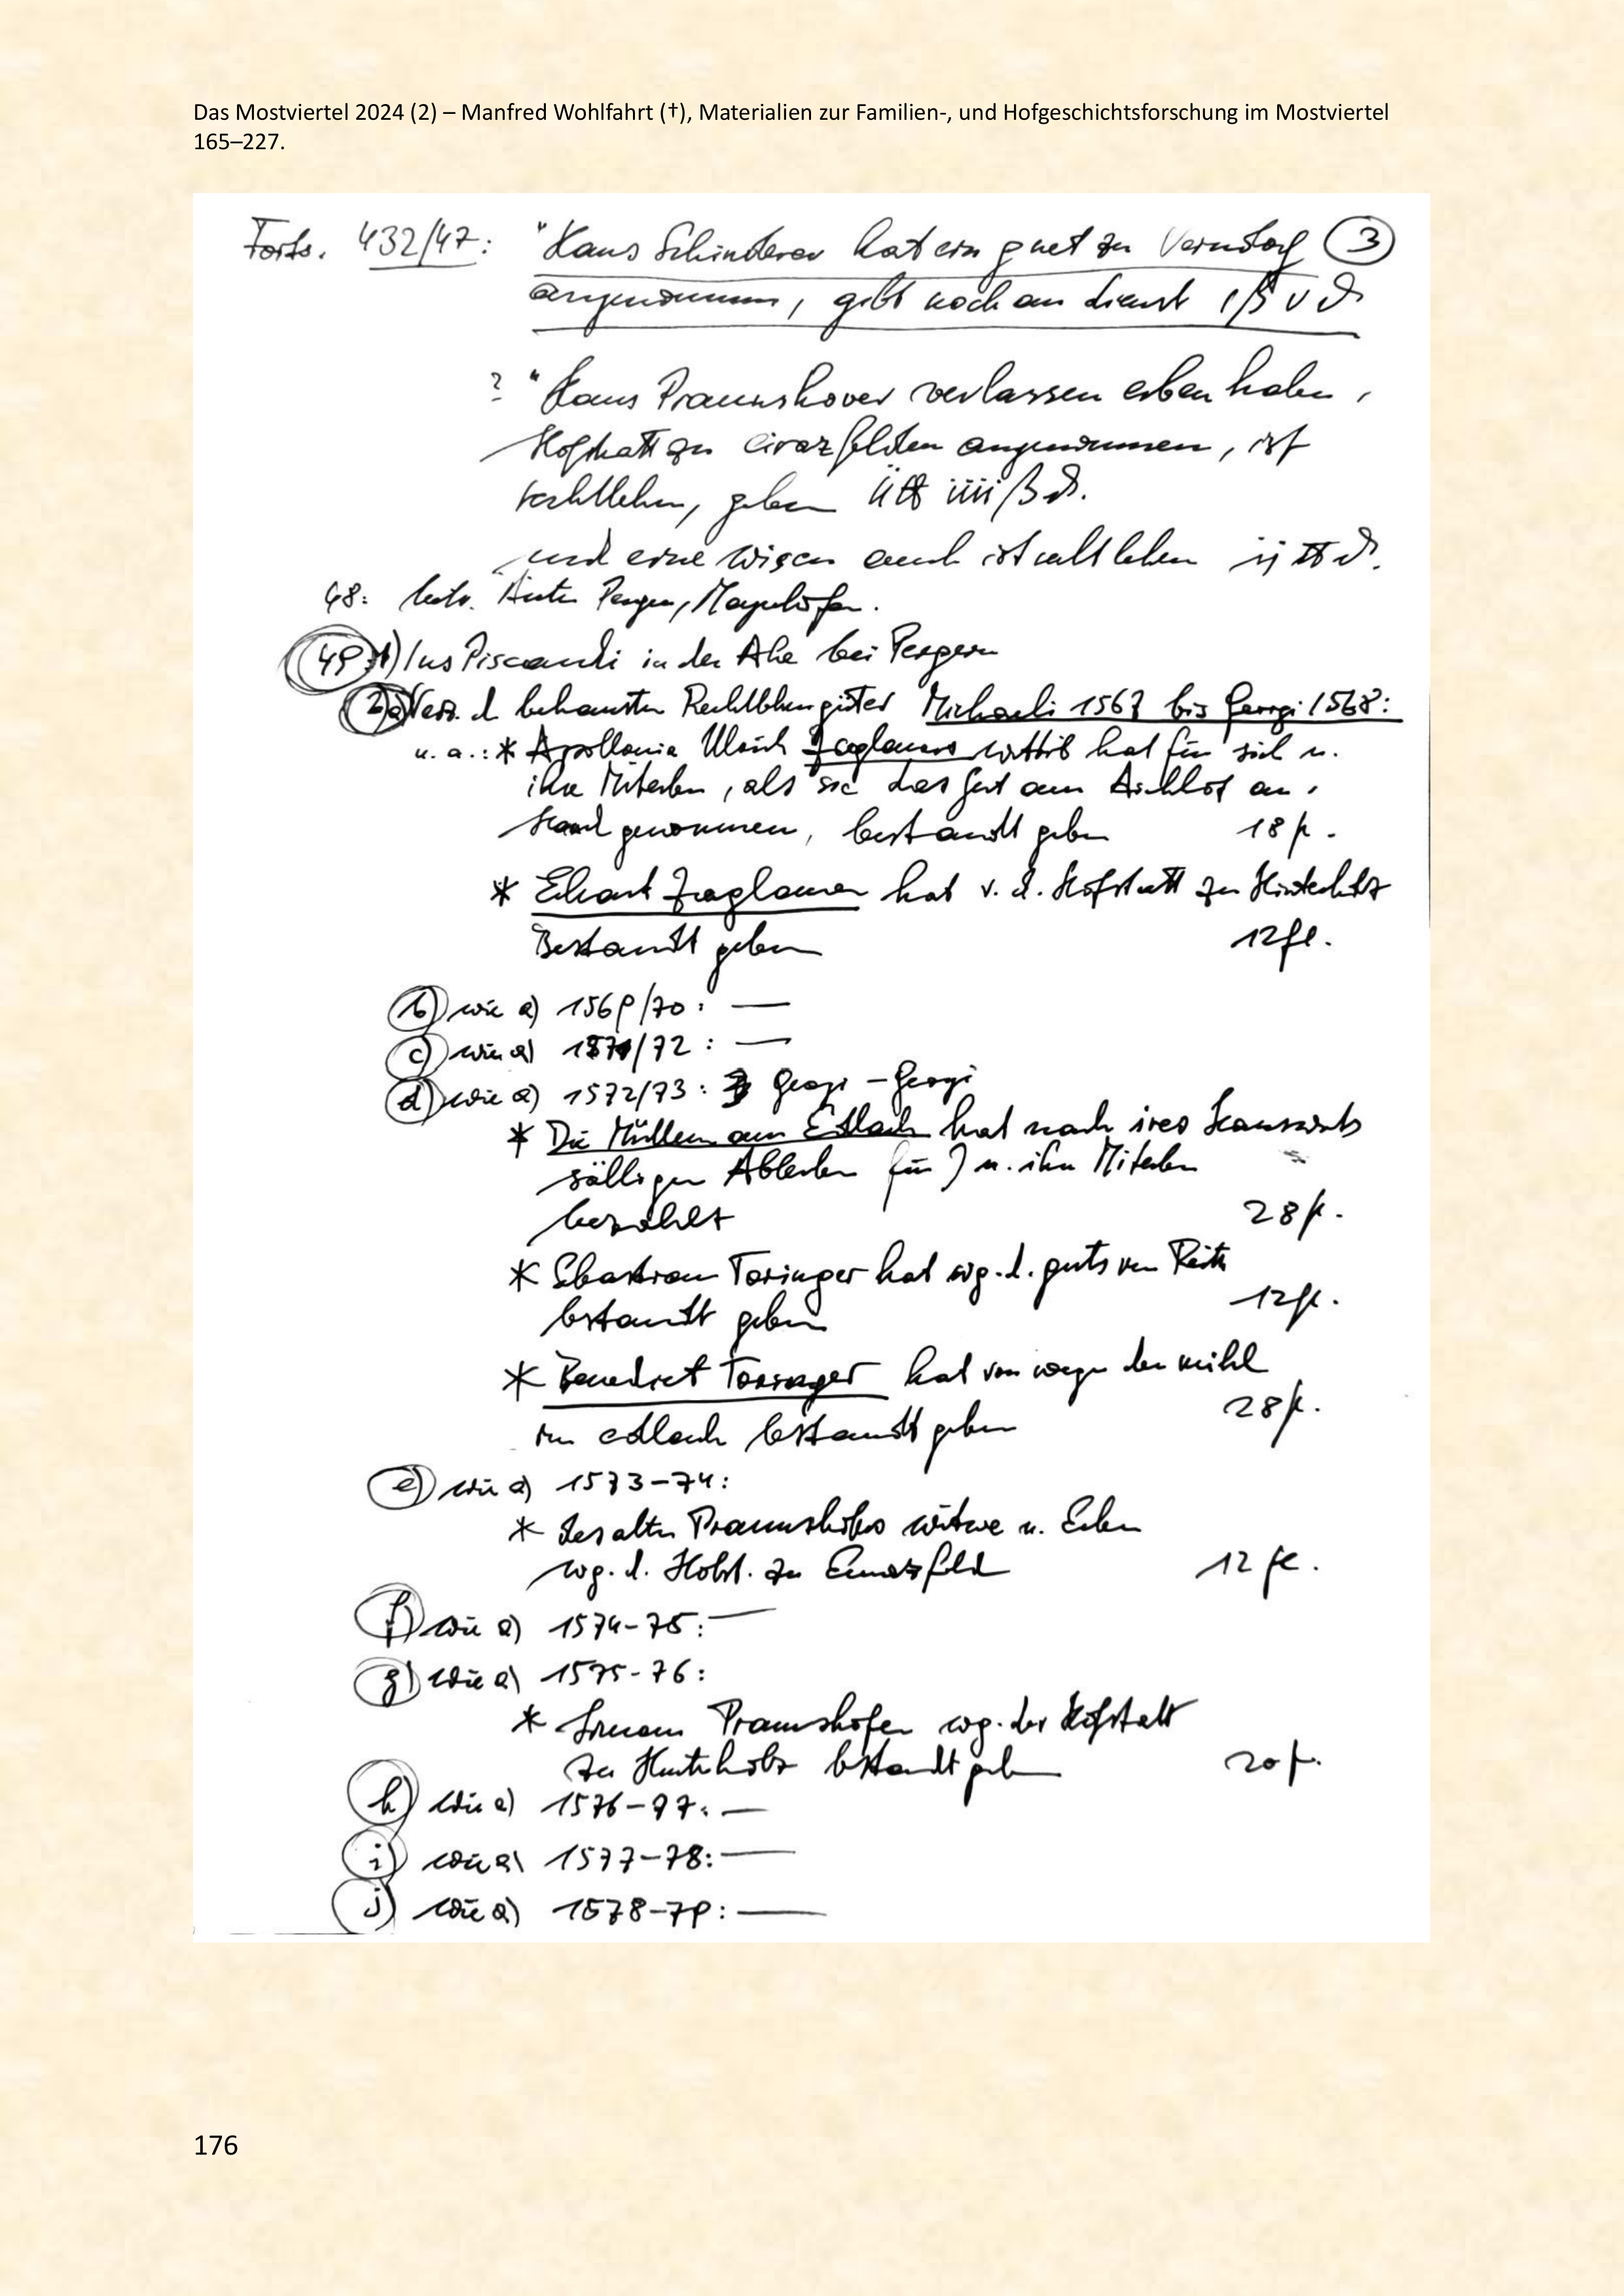 Das Mostviertel 2024 (2) – Manfred Wohlfahrt (†), Materialien zur Familien-, und Hofgeschichtsforschung im Mostviertel
165–227.
Forts. 432/47: "Hans Schinderer hat ein guet zu 3
angenommen, gibt noch an dienst
? "Hans Praunshover verlassen erben haben,
Hofstatt zu angenummen, ist
geben
und eine wisen auch ist ij ℔ ₰.
48: betr. Ämter Pergen, Mayrhöfen.
49 1) Ius Piscandi in der Ahe bei Pergern
2) a) Verz. d behausten Rechtlehengüter Michaeli 1567 bis Georgi 1568:
u. a.: * Apollonia Ulrich wittib hat für sich u.
ihre Miterben, als sie das Gut am an
genommen, bestandt geben 18 fl.
* Erhart hat v. d. Hofstatt zu Hinterholz
Bestandt geben 12 fl.
b) wie a) 1569/70: —
c) wie a) 1571/72: —
d) wie a) 1572/73: Georgi – Georgi
* Die Müllerin am Edlach hat nach ires Hauswirts
sälligen Ableben für u. ihre Miterben
bezahlt 28 fl.
* Sebastian Toringer hat wg. d. guts von Reith
bestandt geben 12 fl.
* Benedict Toringer hat von wegen der mühl
im edlach bestandt geben 28 fl.
e) wie a) 1573–74:
* des alten Praunshofers witwe u. Erben
wg. d. Hofst. zu 12 fl.
f) wie a) 1574–75: —
g) wie a) 1575–76:
* Praunshofer wg. der Hofstatt
zu Hinterholz bestandt geben 20 fl.
h) wie a) 1576–77: —
i) wie a) 1577–78: —
j) wie a) 1578–79: —
176